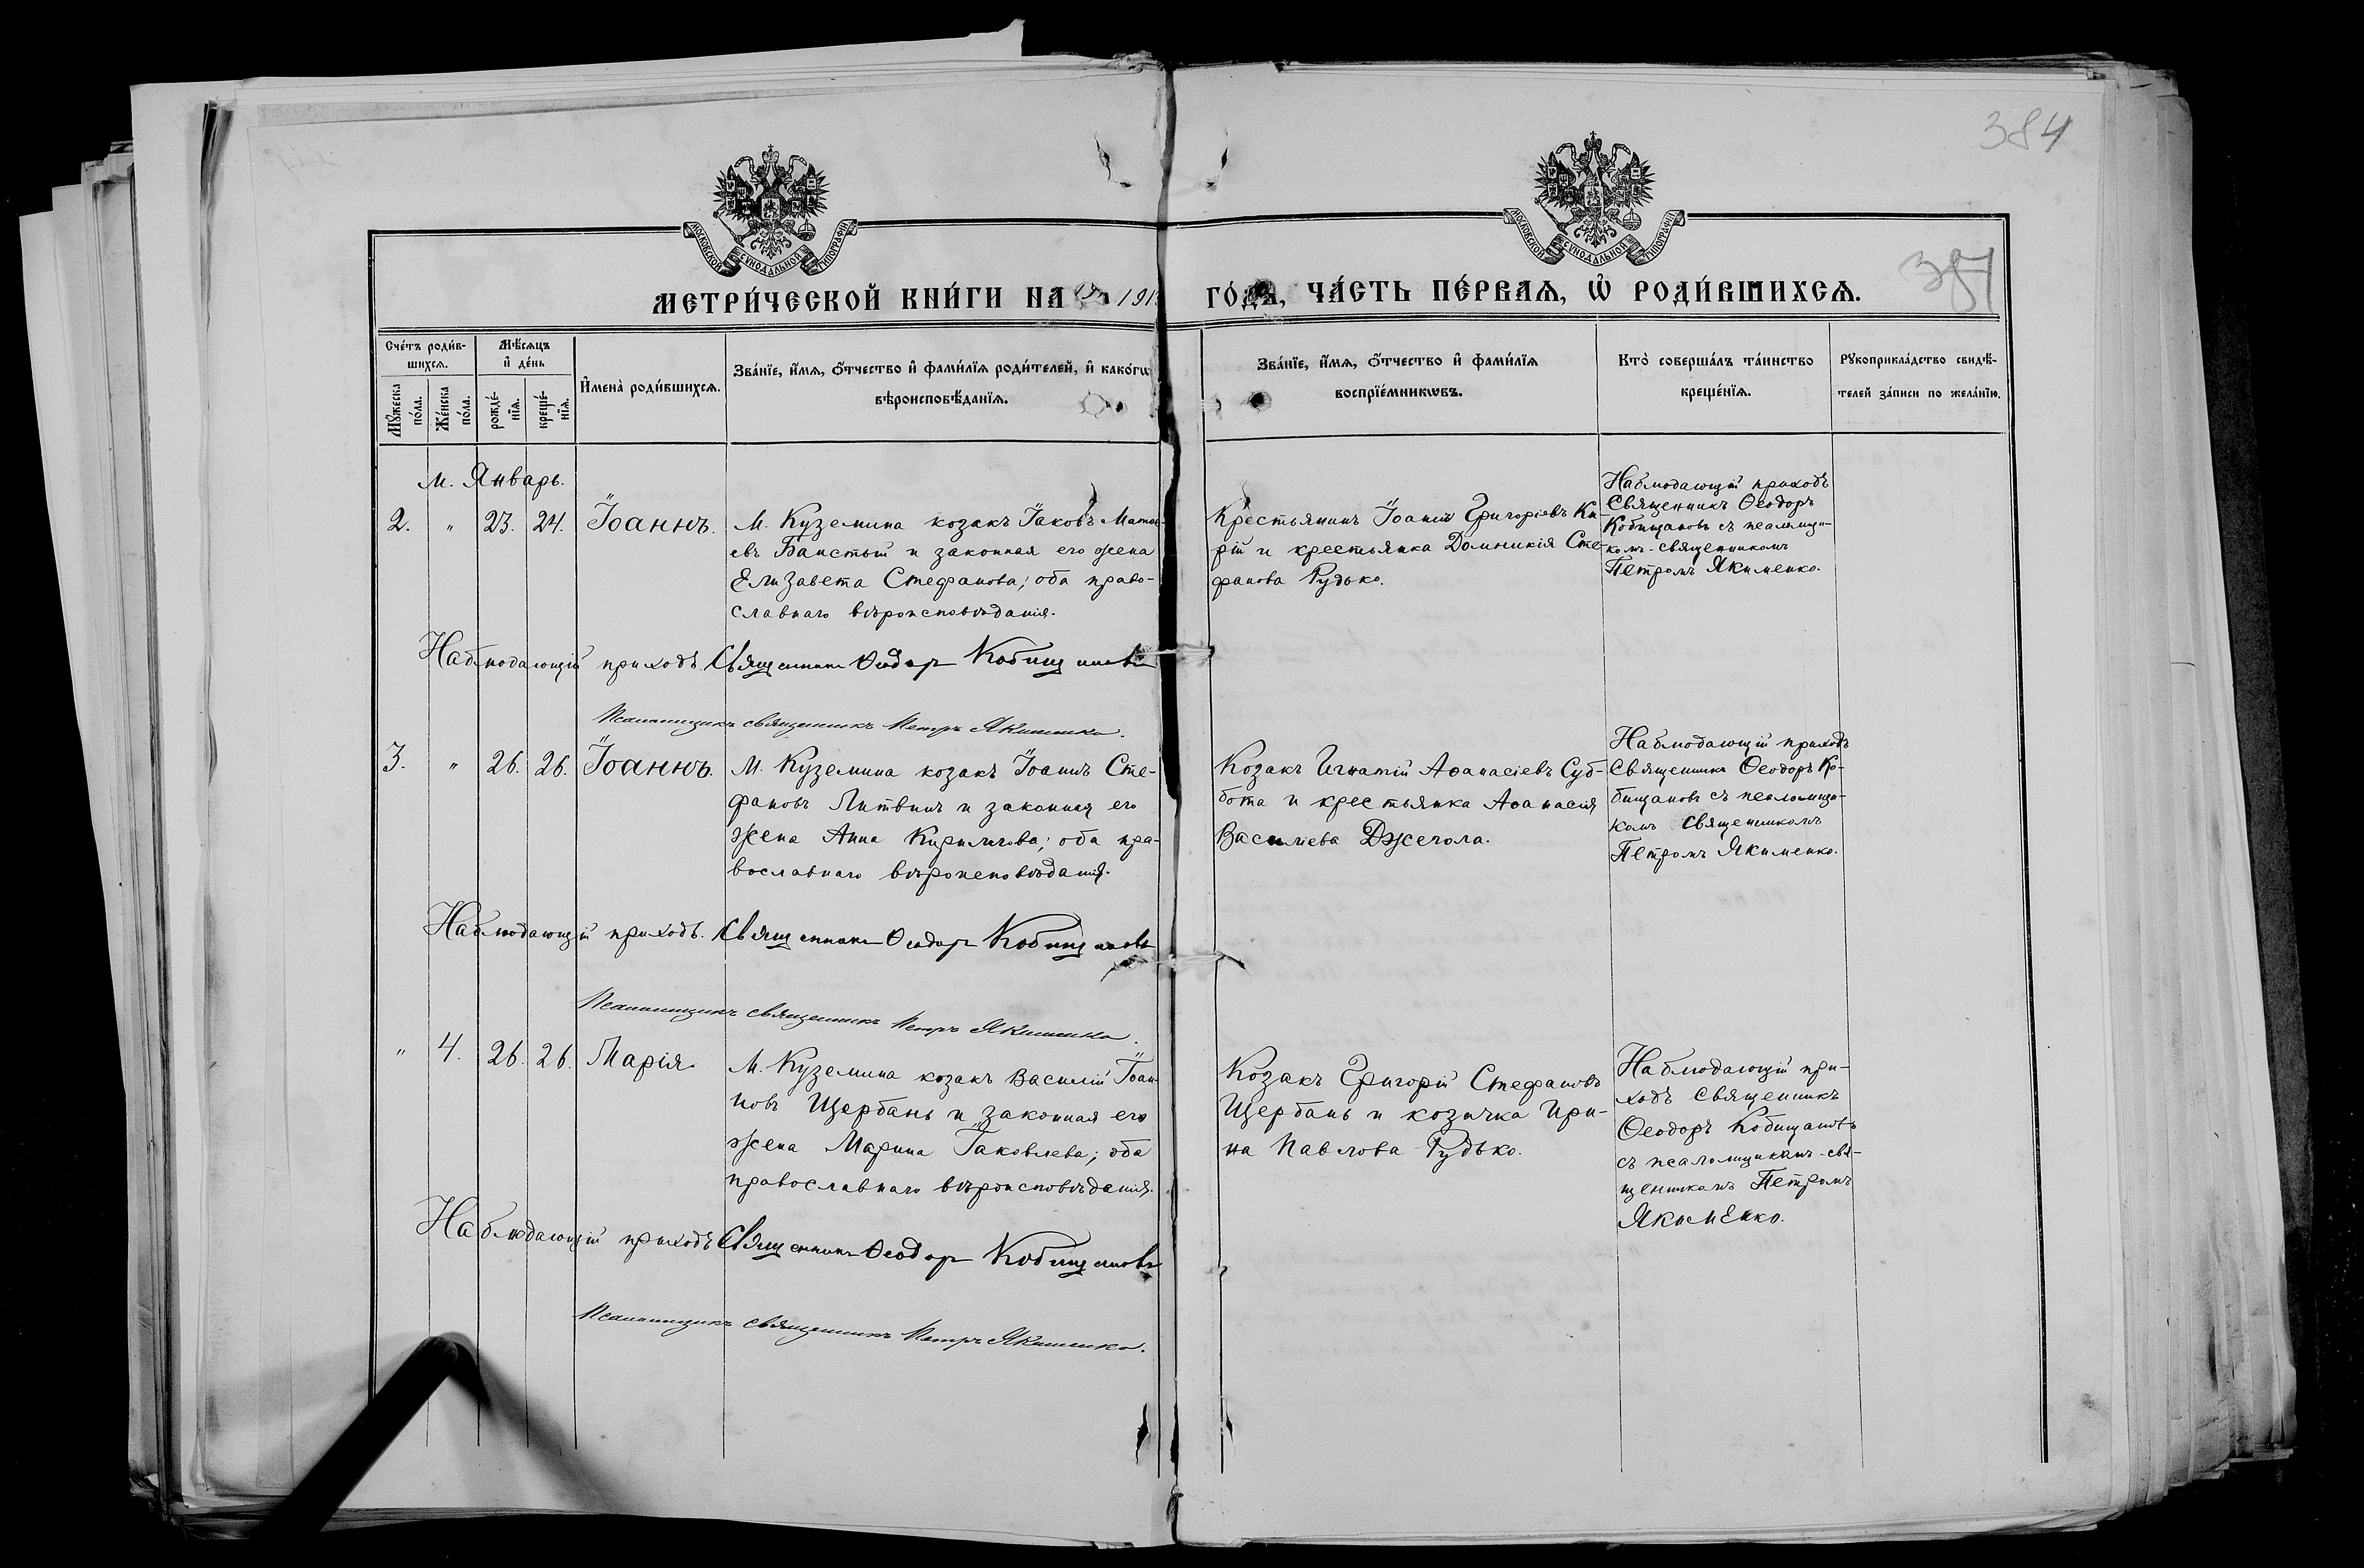 384
МОСКОВСКОЙ СУНОДАЛЬНОЙ ТИПОГРАФІИ
МОСКОВСКОЙ СУНОДАЛЬНОЙ ТИПОГРАФІИ
МЕТРИ́ЧЕСКОЙ КНИ́ГИ НА 191 ГО́ДА, ЧА́СТЬ ПЕ́РВАѦ, Ѡ҆ РОДИ́ВШИХСѦ.
384
Сче́тъ роди́в-
шихсѧ.
Мѣ́сѧцъ
и҆ де́нь
Мꙋ́жеска
по́ла.
Же́нска
по́ла.
рожде́-
нїѧ.
креще́-
нїѧ.
И҆мена̀ роди́вшихсѧ.
Зва́нїе, и҆́мѧ, ѻ҆́тчество и҆ фами́лїѧ роди́телей, и҆ како́гѡ
вѣроисповѣ́данїѧ.
Зва́нїе, и҆́мѧ, ѻ҆́тчество и҆ фами́лїѧ
воспрїе́мникѡвъ.
Кто̀ соверша́лъ та́инство
креще́нїѧ.
Рꙋкоприкла́дство свидѣ́-
телей за́писи по жела́нїю.
м. Январь.
2. " 23. 24. Іоаннъ.
М. Куземина козакъ Іаковъ Матѳе-
евъ Баистый и законная его жена
Елизавета Стефанова; оба право-
славнаго вѣроисповѣданія.
Крестьянинъ Іоаннъ Григоріевъ Ки-
рій и крестьянка Домникія Сте-
фанова Рудько.
Наблюдающій приходъ
Священникъ Ѳеодоръ
Кобищановъ съ псаломщи-
комъ-священникомъ
Петромъ Якименко.
Наблюдающій приходъ Священникъ Ѳеодоръ Кобищановъ
Псаломщикъ священникъ Петръ Якименко.
3. " 26. 26. Іоаннъ.
М. Куземина козакъ Іоаннъ Сте-
фановъ Литвинъ и законная его
жена Анна Кириллова; оба пра-
вославнаго вѣроисповѣданія.
Козакъ Игнатій Аѳанасіевъ Суб-
бота и крестьянка Аѳанасія
Василіева Джегола.
Наблюдающій приходъ
Священникъ Ѳеодоръ Ко-
бищановъ съ псаломщи-
комъ священникомъ
Петромъ Якименко.
Наблюдающій приходъ. Священникъ Ѳеодоръ Кобищановъ
Псаломщикъ священникъ Петръ Якименко.
" 4. 26. 26. Марія
М. Куземина козакъ Василій Іоан-
новъ Щербань и законная его
жена Марина Іаковлева; оба
православнаго вѣроисповѣданія.
Козакъ Григорій Стефановъ
Щербань и козачка Ири-
на Павлова Рудько.
Наблюдающій при-
ходъ священникъ
Ѳеодоръ Кобищановъ
съ псаломщикомъ-свя-
щенникомъ Петромъ
Якименко.
Наблюдающій приходъ Священникъ Ѳеодоръ Кобищановъ
Псаломщикъ священникъ Петръ Якименко.